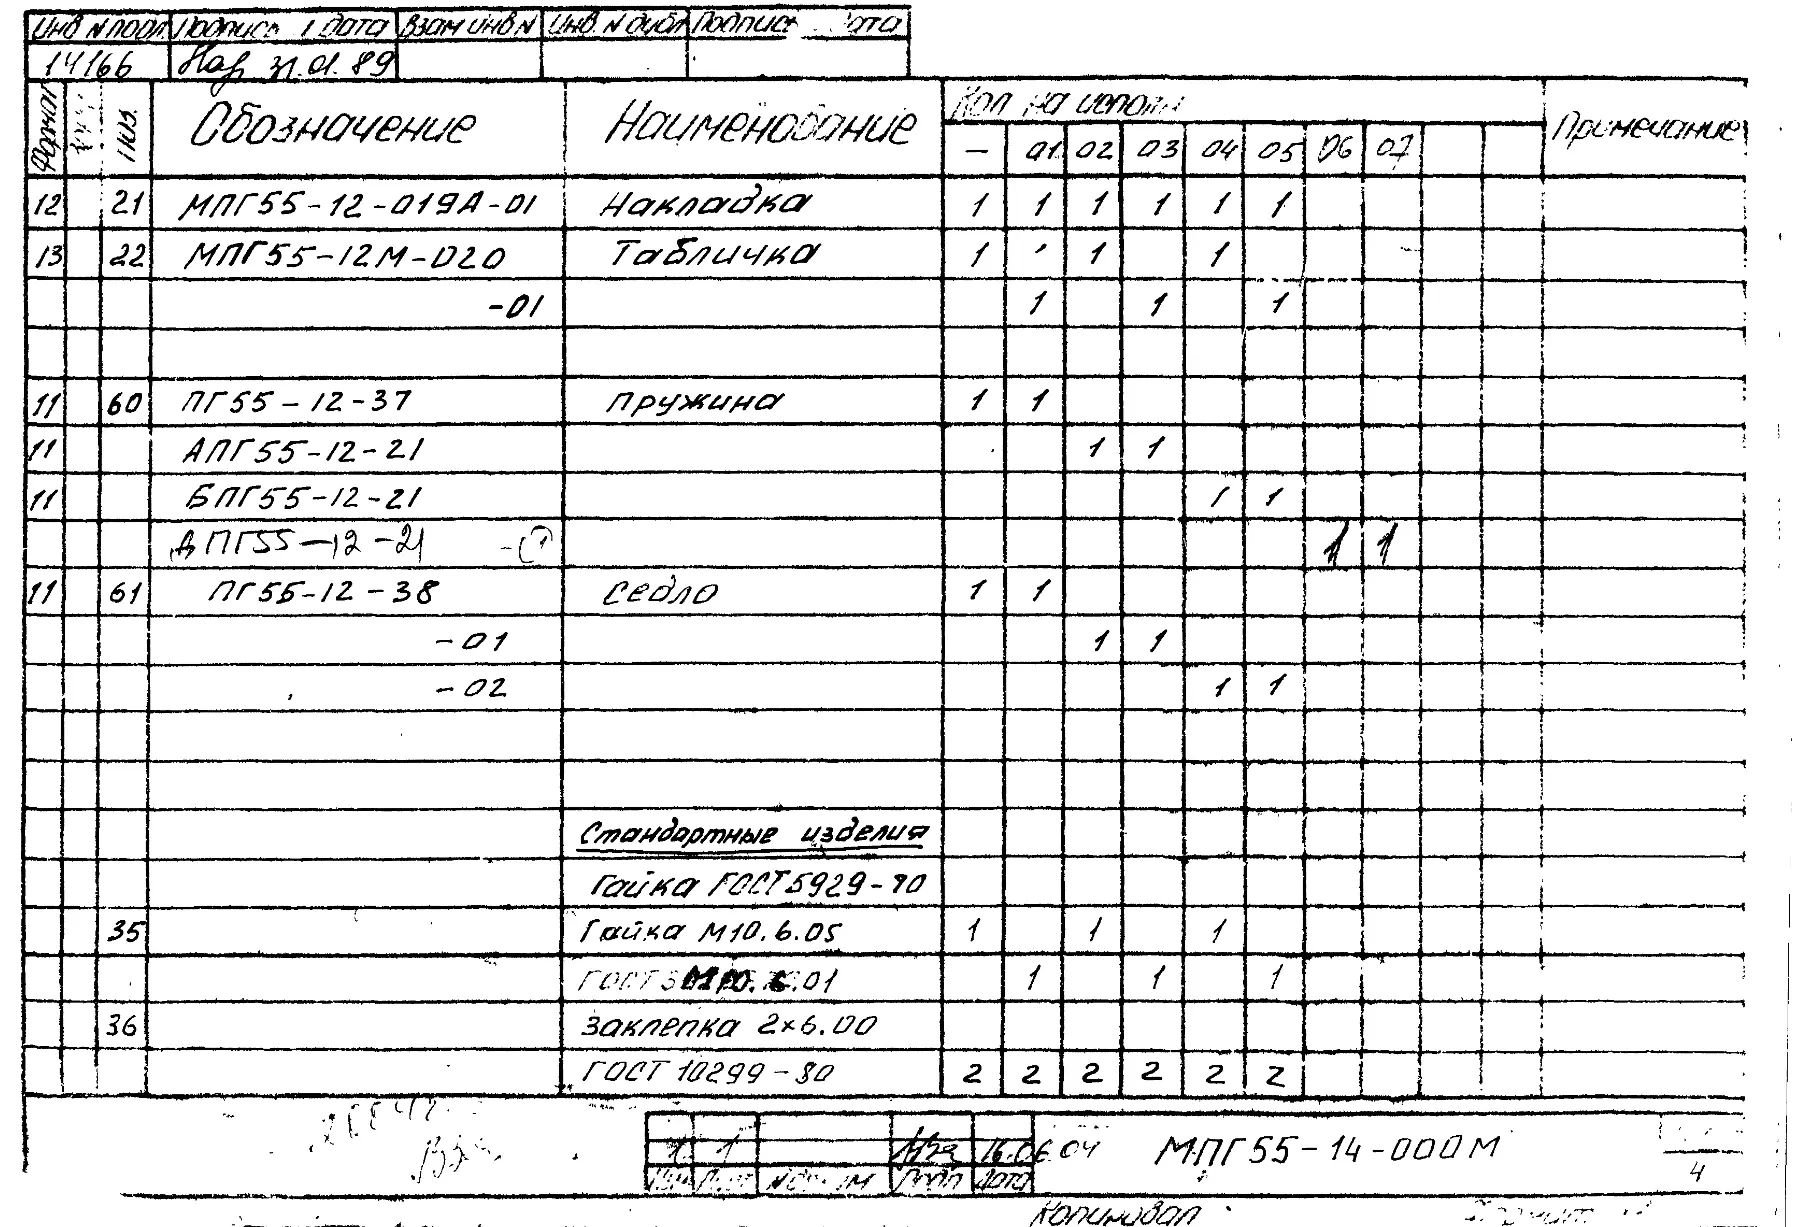 Инв N подл Подпись и дата Взам инв N Инв. N дубл Подпись дата
14166 31.01.89
Формат Поз. Обозначение Наименование Кол на исполн Примечание
— 01 02 03 04 05 06 07
12 21 МПГ55-12-019А-01 Накладка 1 1 1 1 1 1
13 22 МПГ55-12М-020 Табличка 1 1 1
-01 1 1 1
11 60 ПГ55-12-37 Пружина 1 1
11 АПГ55-12-21 1 1
11 БПГ55-12-21 1 1
ДПГ55-12-21 1 1
11 61 ПГ55-12-38 Седло 1 1
-01 1 1
-02 1 1
Стандартные изделия
Гайка ГОСТ 5929-70
35 Гайка М10.6.05 1 1 1
М10.6.01 1 1 1
36 Заклепка 2×6.00
ГОСТ 10299-80 2 2 2 2 2 2
1 16.06.04 МПГ55-14-000М
Изм Лист N докум Подп Дата 4
Копировал